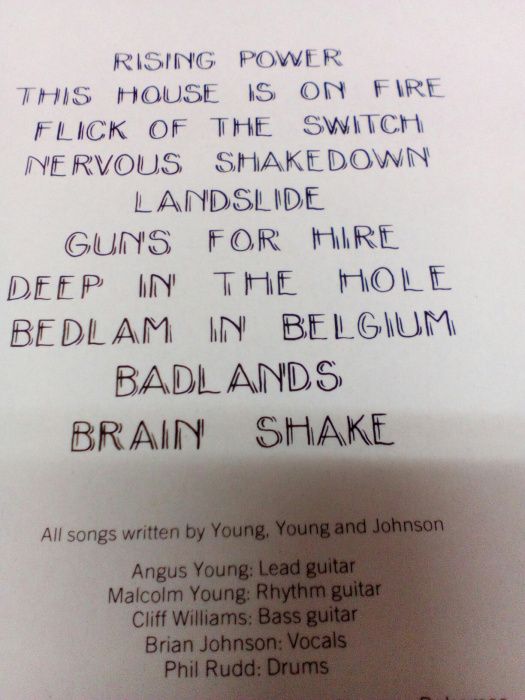 RISING POWER
THIS HOUSE IS ON FIRE
FLICK OF THE SWITCH
NERVOUS SHAKEDOWN
LANDSLIDE
GUNS FOR HIRE
DEEP IN THE HOLE
BEDLAM IN BELGIUM
BADLANDS
BRAIN SHAKE
All songs written by Young, Young and Johnson
Angus Young: Lead guitar
Malcolm Young: Rhythm guitar
Cliff Williams: Bass guitar
Brian Johnson: Vocals
Phil Rudd: Drums